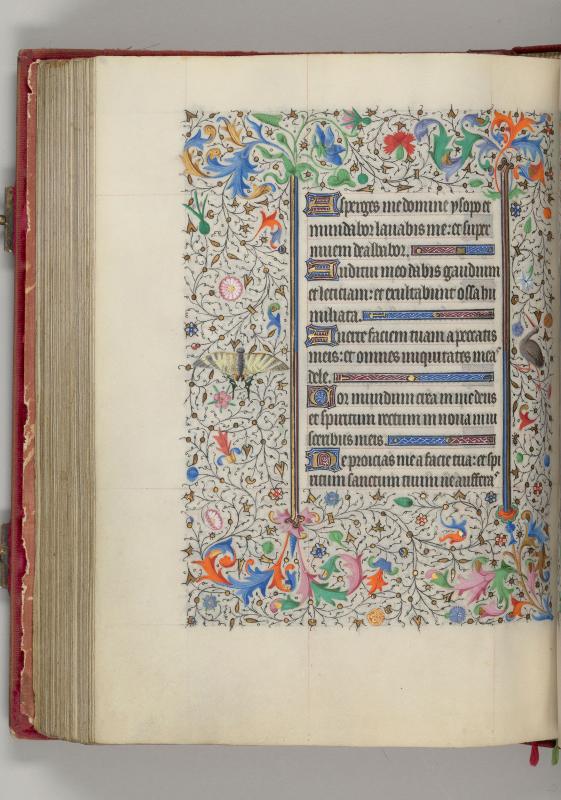 Asperges me domine ysopo et
mundabor lavabis me: et super
nivem dealbabor.
Auditui meo dabis gaudium
et leticiam: et exultabunt ossa hu
miliata.
Averte faciem tuam a peccatis
meis: et omnes iniquitates meas
dele.
Cor mundum crea in me deus
et spiritum rectum innova in vis
ceribus meis.
Ne proicias me a facie tua: et spi
ritum sanctum tuum ne auferas